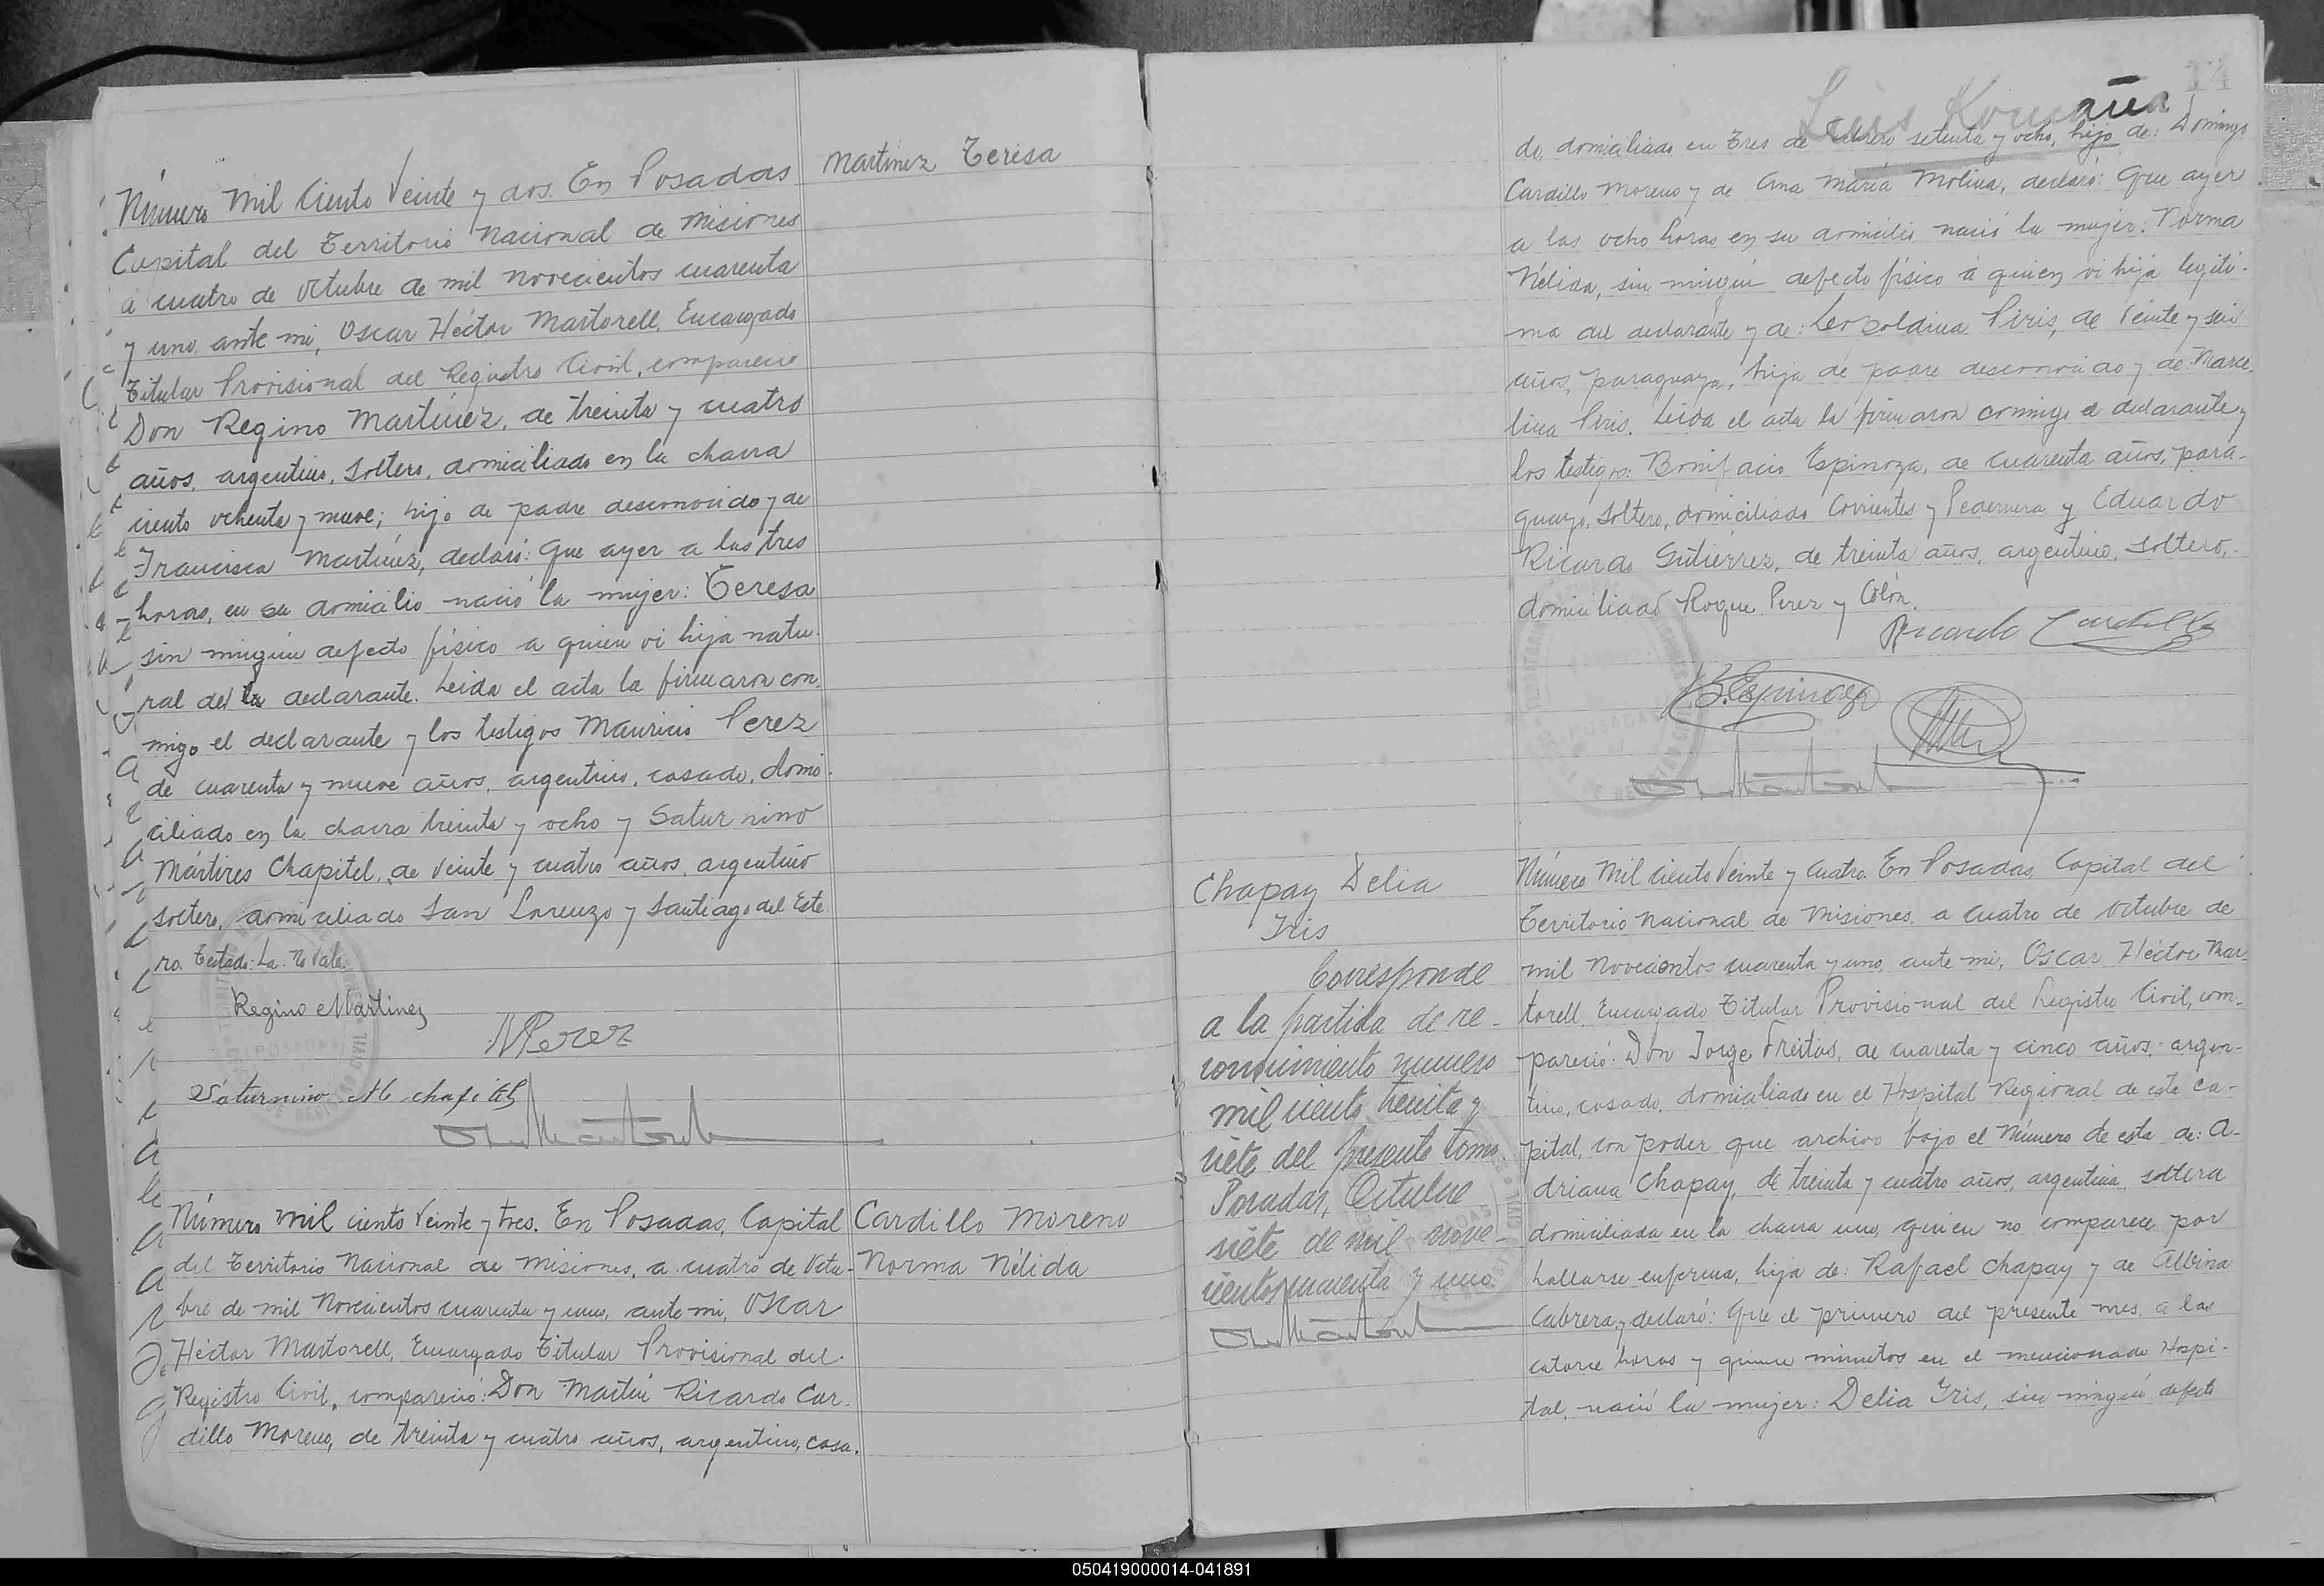 Número Mil Ciento Veinte y dos. En Posadas
Capital del Territorio Nacional de Misiones
a cuatro de Octubre de mil novecientos cuarenta
y uno, ante mi, Oscar Héctor Martorell, Encargado
Titular Provisional del Registro Civil, compareció
Don Regino Martínez, de treinta y cuatro
años, argentino, soltero, domiciliado en la chacra
ciento ochenta y nueve; hijo de padre desconocido y de
Francisca Martínez, declaró: Que ayer a las tres
horas, en su domicilio nació la mujer: Teresa
sin ningún defecto físico a quien vi hija natu-
ral del la declarante. Leida el acta la firmaron con-
migo el declarante y los testigos Mauricio Perez
de cuarenta y nueve años, argentino, casado, domi-
ciliado en la chacra treinta y ocho y Saturnino
Mártires Chapitel, de veinte y cuatro años, argentino
soltero, domiciliado San Lorenzo y Santiago del Este
ro. Testado: La. No Vale.
Regino Martinez
M Perez
Saturnino M chapitel
Martinez Teresa
Número mil ciento Veinte y tres. En Posadas, Capital
del Territorio Nacional de Misiones, a cuatro de Octu-
bre de mil Novecientos cuarenta y uno, ante mi, Oscar
Héctor Martorell, Encargado Titular Provisional del
Registro Civil, compareció: Don Martín Ricardo Car-
dillo Moreno, de treinta y cuatro años, argentino, casa-
Cardillo Moreno
Norma Nélida
do, domiciliado en Tres de Febrero setenta y ocho, hijo de: Domingo
Cardillo Moreno y de Ana María Molina, declaró: Que ayer
a las ocho horas en su domicilio nació la mujer: Norma
Nélida, sin ningún defecto físico a quien vi hija legíti-
ma del declarante y de: Leopoldina Piris, de Veinte y seis
años, paraguaya, hija de padre desconocido y de: Marce-
lina Piris. Leida el acta la firmaron conmigo el declarante y
los testigos: Bonifacio Espinoza, de cuarenta años, para-
guayo, soltero, domiciliado Corrientes y Pedernera y Eduardo
Ricardo Gutiérrez, de treinta años, argentino, soltero,
domiciliado Roque Perez y Colón.
Ricardo Cardillo
B. Espinoza
Chapay Delia
Iris
Corresponde
a la partida de re-
conocimiento numero
mil ciento treinta y
siete del presente tomo.
Posadas, Octubre
siete de mil nove-
cientos cuarenta y uno
Número Mil ciento Veinte y Cuatro. En Posadas, Capital del
Territorio Nacional de Misiones, a cuatro de Octubre de
mil Novecientos cuarenta y uno, ante mi, Oscar Héctor Mar-
torell, Encargado Titular Provisional del Registro Civil, com-
pareció: Don Jorge Freitas, de cuarenta y cinco años, argen-
tino, casado, domiciliado en el Hospital Regional de esta Ca-
pital, con poder que archivo bajo el Número de esta de: A-
driana Chapay, de treinta y cuatro años, argentina, soltera
domiciliada en la chacra uno, quien no comparece por
hallarse enferma, hija de: Rafael Chapay y de Albina
Cabrera, y declaró: Que el primero del presente mes, a las
catorce horas y quince minutos en el mencionado Hospi-
tal, nació la mujer: Delia Iris, sin ningún defecto
050419000014-041891